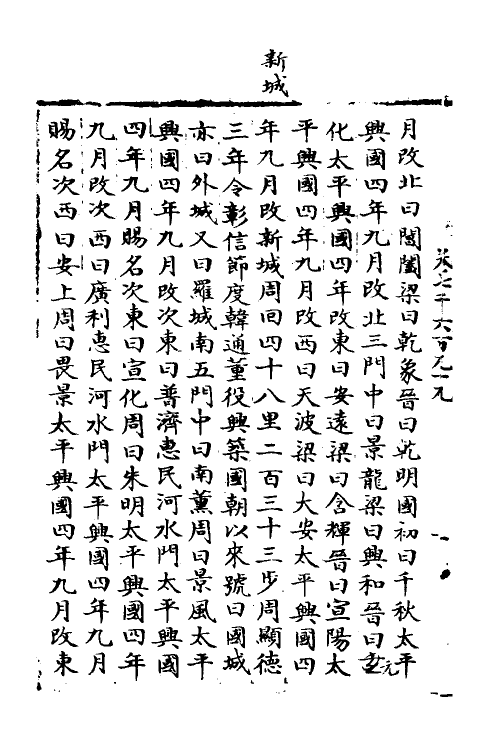 新城
月改北曰閶闔梁曰乾象晉曰乾明國初曰千秋太平
興國四年九月改北三門中曰景龍梁曰興和晉曰玄元
化太平興國四年改東曰安遠梁曰含輝晉曰宣陽太
平興國四年九月改西曰天波梁曰大安太平興國四
年九月改新城周回四十八里二百三十三步周顯德
三年令彰信節度韓通董役興築國朝以來號曰國城
亦曰外城又曰羅城南五門中曰南薰周曰景風太平
興國四年九月改次東曰普濟惠民河水門太平興國
四年九月賜名次東曰宣化周曰朱明太平興國四年
九月改次西曰廣利惠民河水門太平興國四年九月
賜名次西曰安上周曰畏景太平興國四年九月改東
卷七千六百九十九
一